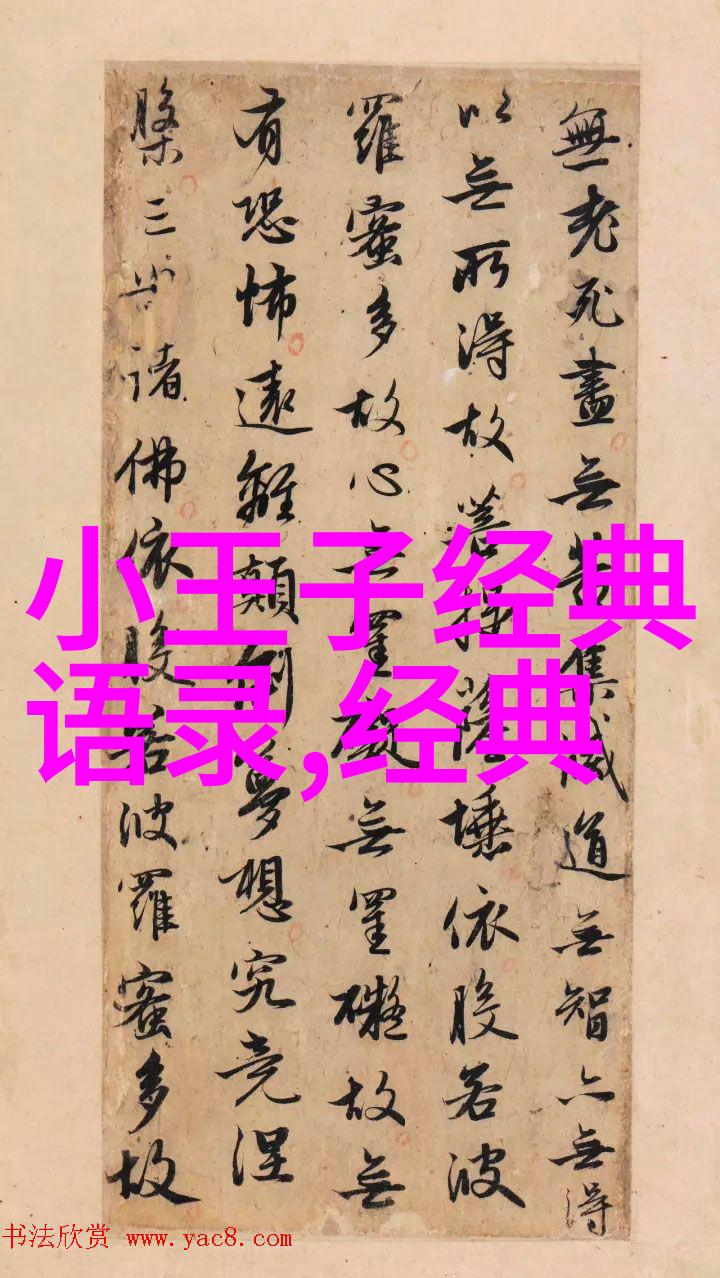 無老死盡无苦集滅道无智亦無得
以无所得故菩提薩埵依般若波
羅蜜多故心无罣礙无罣礙故无
有恐怖遠離顛倒夢想究竟涅
槃三世諸佛依般若波羅蜜多故
小王子经典
语录,经典
书法欣赏 www.yac8.com